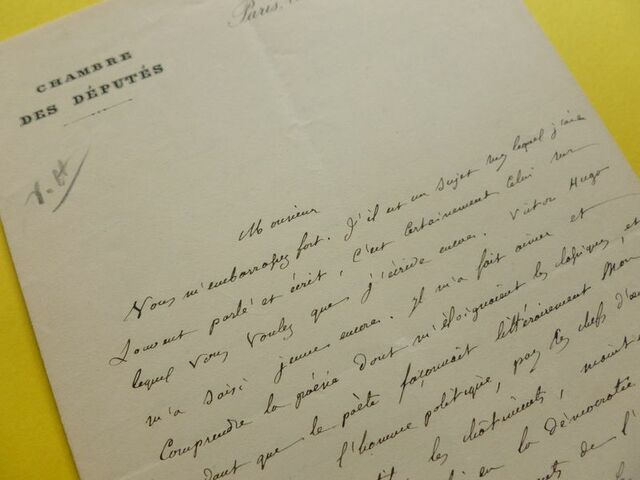 Paris,
CHAMBRE
DES DÉPUTÉS
V. H
Monsieur
Vous m'embarrassez fort. S'il est un sujet sur lequel j'aie
souvent parlé et écrit, c'est certainement celui sur
lequel vous voulez que j'écrive encore. Victor Hugo
m'a saisi jeune encore. Il m'a fait aimer et
comprendre la poésie dont m'éloignaient les classiques, et
dant que le poète façonnait littérairement mon
l'homme politique, par les chefs d'œu
les châtiments,
en la démocratie
de l'